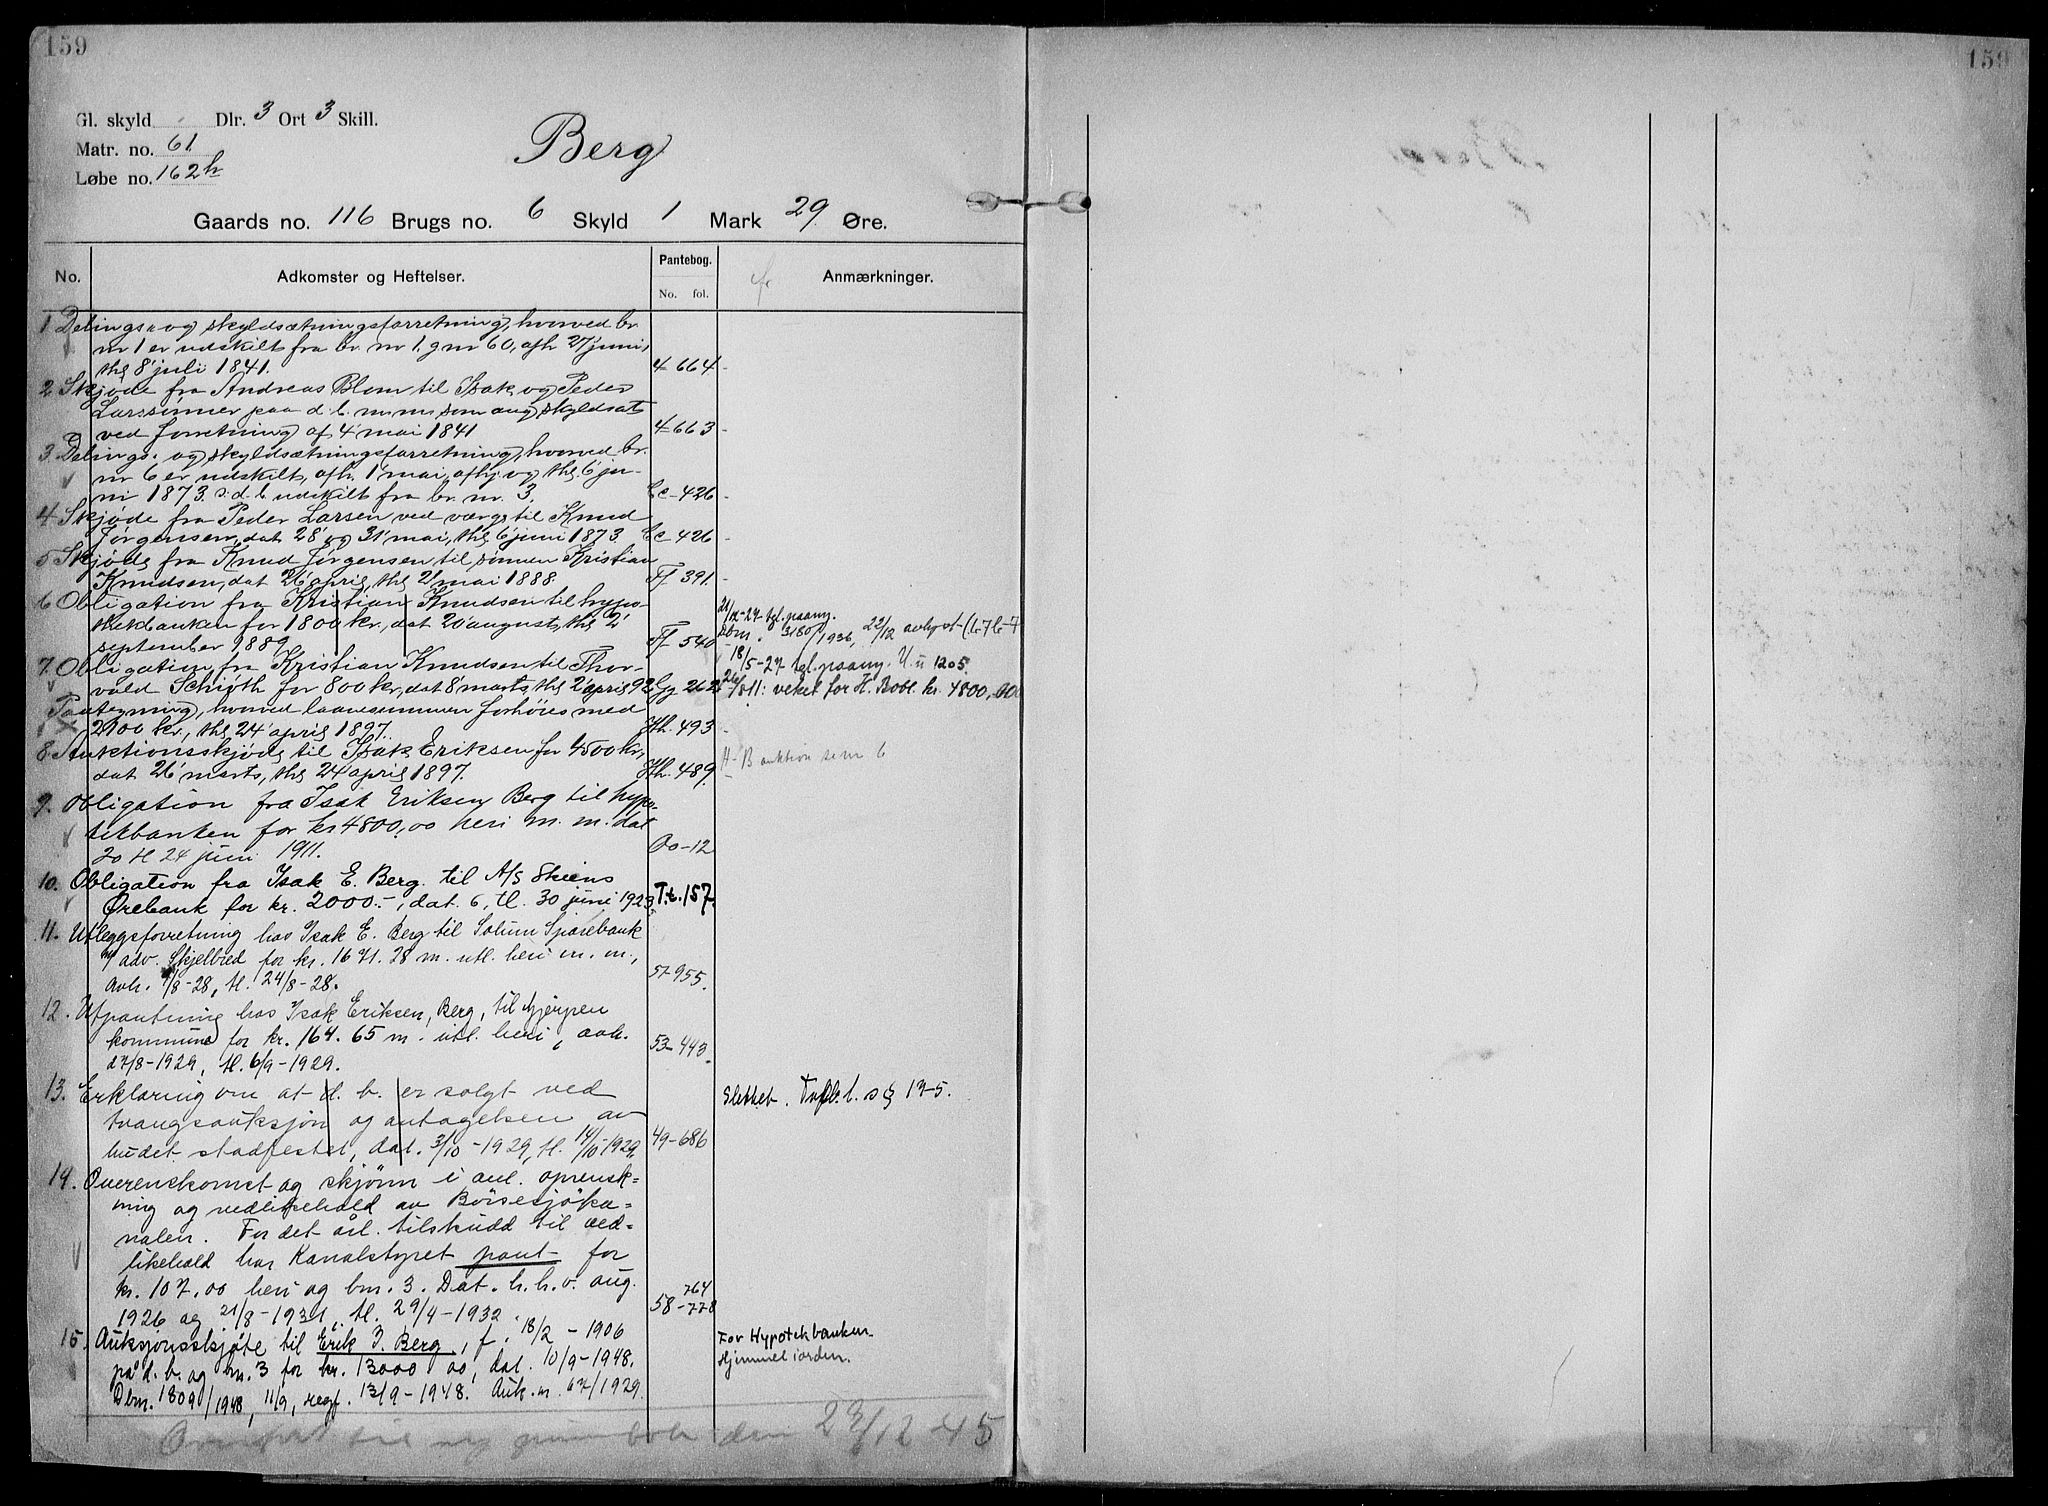 159
159
Gl. skyld Dlr. 3 Ort 3 Skill.
Matr. no. 61
Løbe no. 162h
Berg
Gaards no. 116 Brugs no. 6 Skyld 1 Mark 29 Øre.
No. Adkomster og Heftelser. Pantebog. No. fol. Anmærkninger.
1 Delings- og skyldsætningsforretning, hvorved br.
nr 1 er udskilt fra br. nr 1, g nr 60, afh 27 juni,
thl 8 juli 1841. 4 664
2 Skjøde fra Andreas Blom til Isak og Peder
Larssønner paa d. b. m. m. som ang skyldsat
ved forretning af 4 mai 1841 4 663
3. Delings- og skyldsætningsforretning, hvorved br.
nr 6 er udskilt, afh. 1 mai, afhj og thl. 6 ju-
ni 1873. ɔ: d. b. udskilt fra br. nr. 3. Cc-426
4 Skjøde fra Peder Larsen ved værge til Knud
Jørgensen, dat 28 og 31 mai, thl 6 juni 1873. Cc 426
5 Skjøde fra Knud Jørgensen til sønnen Kristian
Knudsen, dat 26 april, thl 2 mai 1888. Ff 391
6 Obligation fra Kristian Knudsen til hypo-
thekbanken for 1800 kr., dat 20 august, thl 2
september 1889 Ff 540
Dbm. 3180/1936, 22/12 avlyst
7. Obligation fra Kristian Knudsen til Thor-
vald Schiøth for 800 kr., dat 8 marts, thl 2 april 92 Gg 262
18/5-27 tgl. paany. U. u 1205
26/6 11: veket for H. Bobl. kr. 4800,00
Paategning, hvorved laanesummen forhøies med
2100 kr., thl 24 april 1897. Hh. 493
8. Auktionsskjøde til Isak Eriksen for 4500 kr,
dat 26 marts, thl 24 april 1897. Hh. 489.
H-B auktion sem 6
9. Obligation fra Isak Eriksen Berg til hypo-
tekbanken for kr 4800,00 heri m. m. dat
20 tl 24 juni 1911. Oo-12
10. Obligation fra Isak E. Berg til A/S Skiens
Ørebank for kr. 2000.-, dat. 6, tl. 30 juni 1923. T.t. 157.
11. Utleggsforretning hos Isak E. Berg til Solum Sparebank
v/ adv. Skjelbred for kr. 1671.28 m. utl. heri m. m.,
avh. 7/8-28, tl. 24/8-28. 57 955.
12. Utpantning hos Isak Eriksen, Berg, til Gjerpen
kommune for kr. 164.65 m. utl. heri, avh.
27/8-1929, tl. 6/9-1929. 53-443
13. Erklæring om at d. b. er solgt ved
tvangsauksjon og antagelsen av
budet stadfestet, dat. 3/10-1929, tl. 14/10-1929. 49-686
Slettet. Tvfbl. l. s § 17-5.
14. Overenskomst og skjønn i anl. oprensk-
ning og vedlikehold av Börsesjøka-
nalen. For det årl. tilskudd til ved-
likehold har Kanalstyret pant for
kr. 107.00 heri og bnr. 3. Dat. h. h. v. aug.
1926 og 21/8-1931, tl. 29/4-1932. 58-764 778
15. Auksjonsskjøte til Erik I. Berg, f. 18/2-1906
på d. b. og bnr. 3 for kr. 13000 00, dat. 10/9-1948.
Dbm. 1809/1948, 11/9, regf. 13/9-1948. Auk. nr. 67/1929.
For Hypotekbanken.
Hjemmel i orden.
til ny grunnbok den 23/12 45